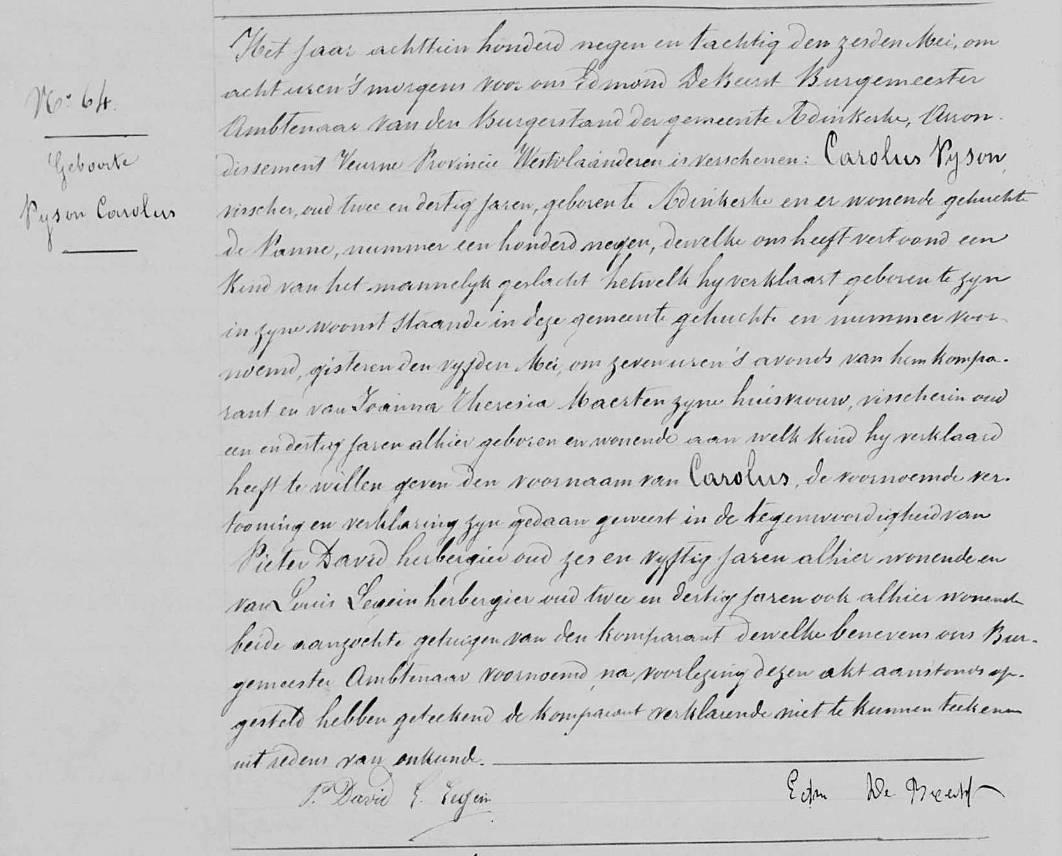 N.º 64.
Geboorte
Pyson Carolus
Het jaar achttien honderd negen en tachtig den zesden Mei, om
acht uren 's morgens voor ons Edmond De Beerst Burgemeester
Ambtenaar van den Burgerstand der gemeente Adinkerke, Arron-
dissement Veurne Provincie Westvlaanderen is verschenen: Carolus Pyson,
visscher, oud twee en dertig jaren, geboren te Adinkerke en er wonende gehuchte
de Panne, nummer een honderd negen, dewelke ons heeft vertoond een
Kind van het mannelyk geslacht hetwelk hy verklaart geboren te zyn
in zyne woonst staande in deze gemeente gehuchte en nummer voor-
noemd, gisteren den vyfden Mei, om zeven uren 's avonds van hem kompa-
rant en van Joanna Theresia Maerten zyne huisvrouw, visscherin oud
een en dertig jaren alhier geboren en wonende aan welk kind hy verklaard
heeft te willen geven den voornaam van Carolus, de voornoemde ver-
tooning en verklaring zyn gedaan geweest in de tegenwoordigheid van
Pieter David herbergier oud zes en vyftig jaren alhier wonende en
van Louis Legein herbergier oud twee en dertig jaren ook alhier wonende
beide aanzochte getuigen van den komparant dewelke benevens ons Bur-
gemeester Ambtenaar voornoemd, na voorlezing dezen akt aanstonds op-
gesteld hebben geteekend de komparant verklarende niet te kunnen teekenen
uit redens van onkunde.
P. David L. Legein
Edm De Beerst